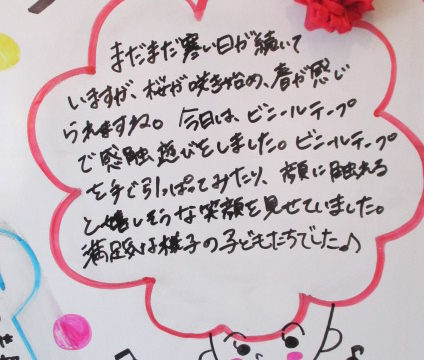 まだまだ寒い日が続いて
いますが、桜が咲き始め、春が感じ
られますね。今日は、ビニールテープ
で感触遊びをしました。ビニールテープ
を手で引っぱってみたり、顔に触れる
と嬉しそうな笑顔を見せていました。
満足気な様子の子どもたちでした♪